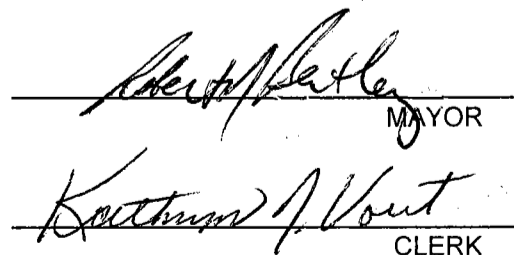 Robert M Bentley
MAYOR
Kathryn J. Vout
CLERK